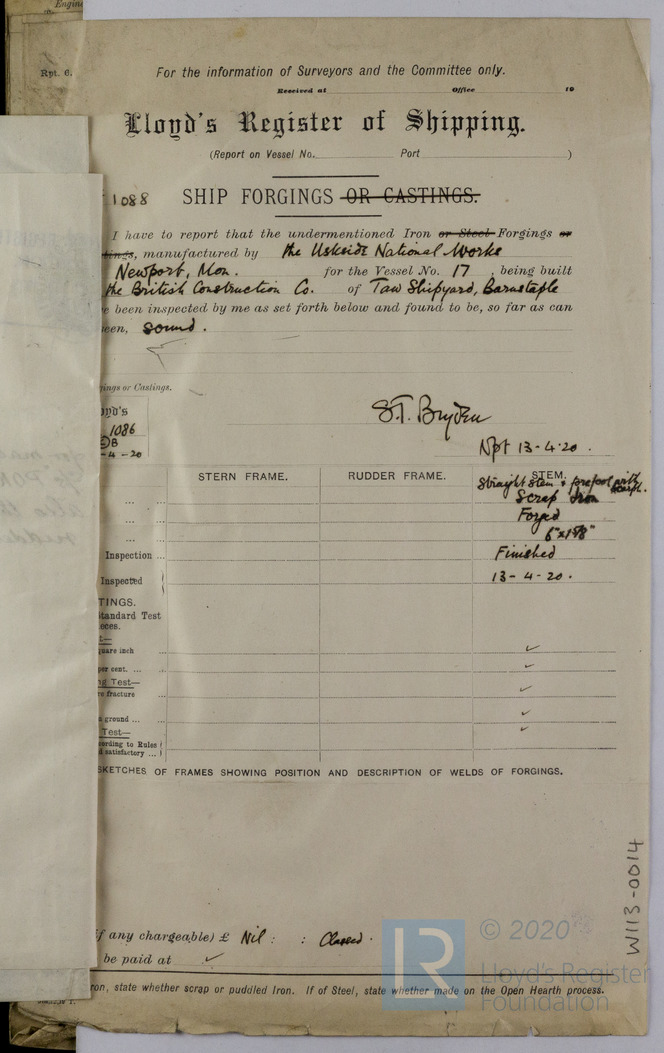 Engine
Rpt. 6.
For the information of Surveyors and the Committee only.
Received at Office 19
Lloyd's Register of Shipping.
(Report on Vessel No. Port )
1088 SHIP FORGINGS OR CASTINGS.
I have to report that the undermentioned Iron or Steel Forgings or
tings, manufactured by the Uskside National Works
Newport, Mon. for the Vessel No. 17, being built
the British Construction Co. of Taw Shipyard, Barnstaple
e been inspected by me as set forth below and found to be, so far as can
een, sound.
gings or Castings.
oyd's
1086
B
-4-20
S.T. Bryden
Npt 13-4-20.
STERN FRAME. RUDDER FRAME. STEM.
Straight Stem & forefoot with scarph.
Scrap Iron
Forged
6"x1⅞"
Inspection ... Finished
Inspected 13-4-20.
TINGS.
Standard Test
eces.
t—
quare inch
per cent. ...
ng Test—
re fracture
a ground ...
Test—
cording to Rules
d satisfactory ...
SKETCHES OF FRAMES SHOWING POSITION AND DESCRIPTION OF WELDS OF FORGINGS.
if any chargeable) £ Nil : : Classed.
be paid at
ron, state whether scrap or puddled Iron. If of Steel, state whether made on the Open Hearth process.
W113-0014
LR
© 2020
Lloyd's Register
Foundation